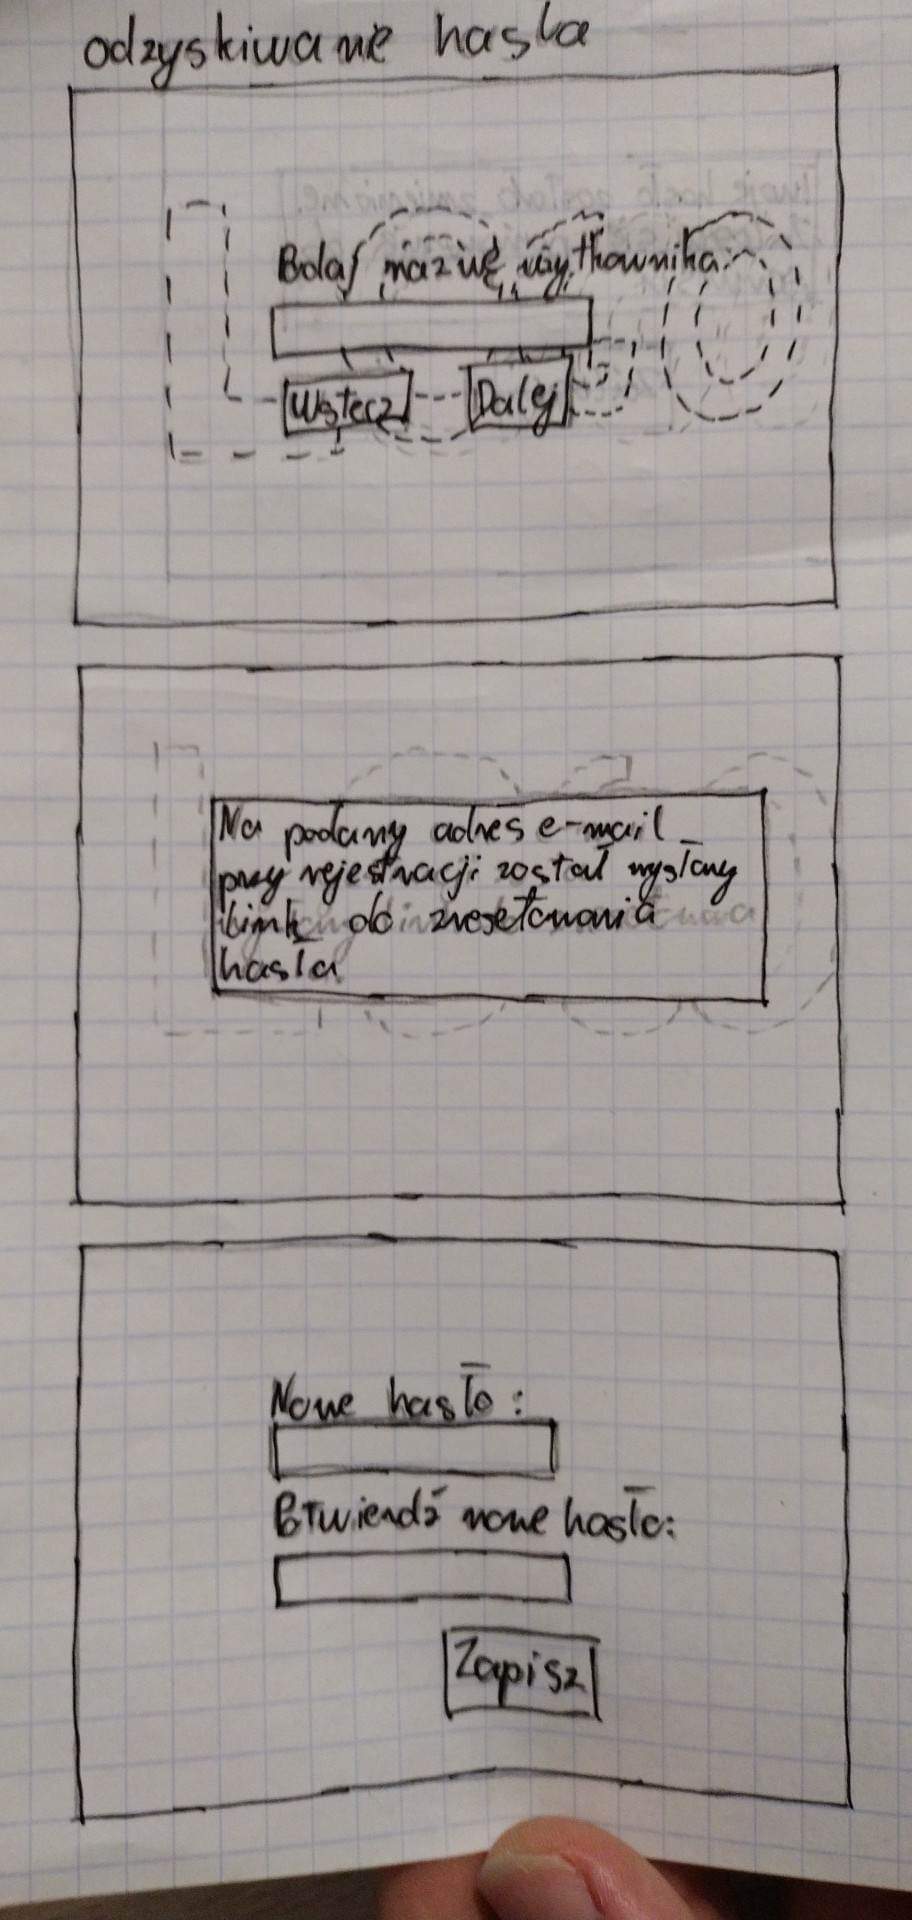 odzyskiwanie hasła
Podaj nazwę użytkownika:
Wstecz
Dalej
Na podany adres e-mail
przy rejestracji został wysłany
link do zresetowania
hasła
Nowe hasło:
Potwierdź nowe hasło:
Zapisz